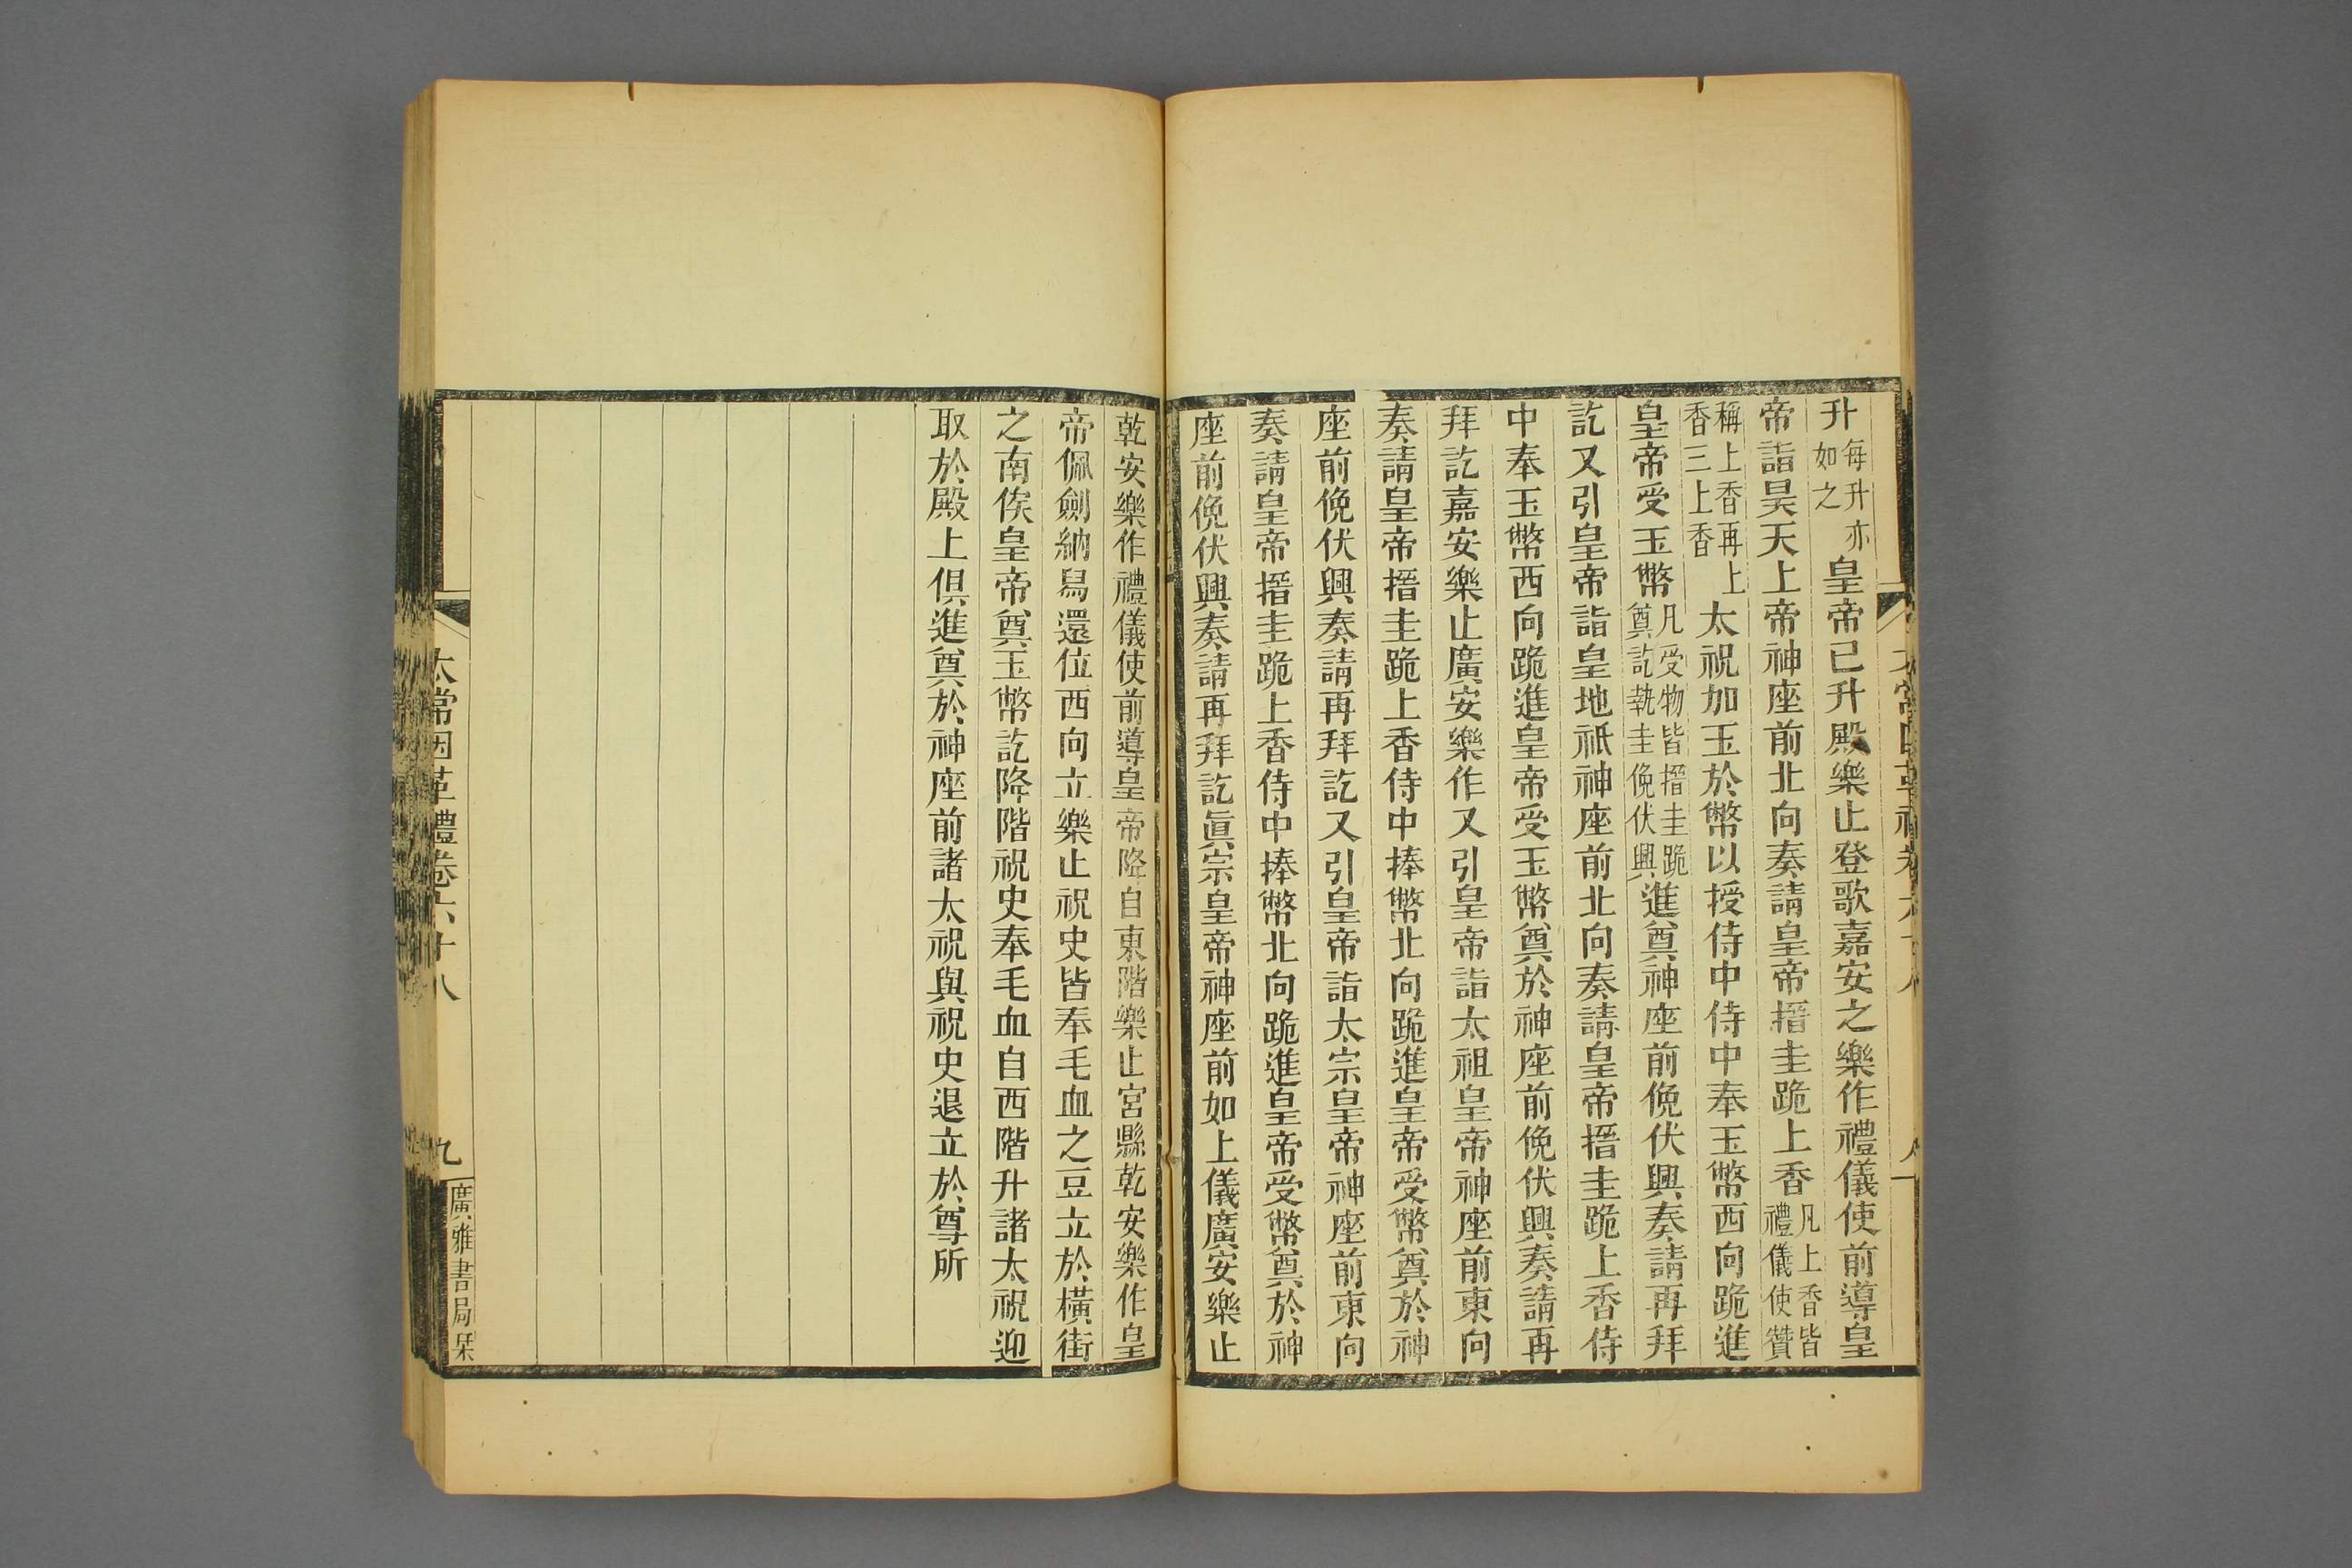 升每升亦如之皇帝已升殿樂止登歌嘉安之樂作禮儀使前導皇
帝詣昊天上帝神座前北向奏請皇帝搢圭跪上香凡上香皆禮儀使贊
稱上香再上香三上香太祝加玉於幣以授侍中侍中奉玉幣西向跪進
皇帝受玉幣凡受物皆搢圭跪奠訖執圭俛伏興進奠神座前俛伏興奏請再拜
訖又引皇帝詣皇地祇神座前北向奏請皇帝搢圭跪上香侍
中奉玉幣西向跪進皇帝受玉幣奠於神座前俛伏興奏請再
拜訖嘉安樂止廣安樂作又引皇帝詣太祖皇帝神座前東向
奏請皇帝搢圭跪上香侍中捧幣北向跪進皇帝受幣奠於神
座前俛伏興奏請再拜訖又引皇帝詣太宗皇帝神座前東向
奏請皇帝搢圭跪上香侍中捧幣北向跪進皇帝受幣奠於神
座前俛伏興奏請再拜訖眞宗皇帝神座前如上儀廣安樂止
乾安樂作禮儀使前導皇帝降自東階樂止宮縣乾安樂作皇
帝佩劍納舄還位西向立樂止祝史皆奉毛血之豆立於橫街
之南俟皇帝奠玉幣訖降階祝史奉毛血自西階升諸太祝迎
取於殿上俱進奠於神座前諸太祝與祝史退立於尊所
太常因革禮卷六十八
九
廣雅書局栞